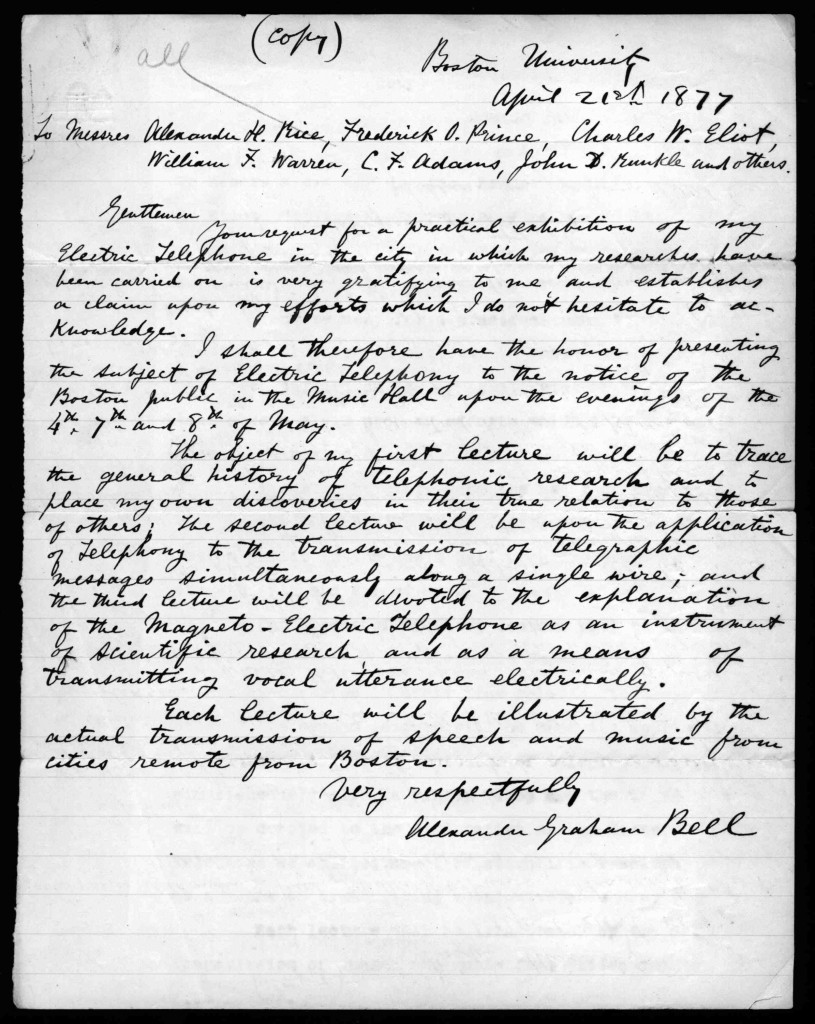 (copy)
all
Boston University
April 21st 1877
To Messres Alexander H. Rice, Frederick O. Prince, Charles W. Eliot,
William F. Warren, C. F. Adams, John D. Runkle and others.
Gentlemen
Your request for a practical exhibition of my
Electric Telephone in the city in which my researches have
been carried on is very gratifying to me and establishes
a claim upon my efforts which I do not hesitate to ac-
knowledge.
I shall therefore have the honor of presenting
the subject of Electric Telephony to the notice of the
Boston public in the Music Hall upon the evenings of the
4th, 7th and 8th of May.
The object of my first lecture will be to trace
the general history of telephonic research and to
place my own discoveries in their true relation to those
of others; The second lecture will be upon the application
of Telephony to the transmission of telegraphic
messages simultaneously along a single wire; and
the third lecture will be devoted to the explanation
of the Magneto-Electric Telephone as an instrument
of scientific research, and as a means of
transmitting vocal utterance electrically.
Each lecture will be illustrated by the
actual transmission of speech and music from
cities remote from Boston.
Very respectfully
Alexander Graham Bell